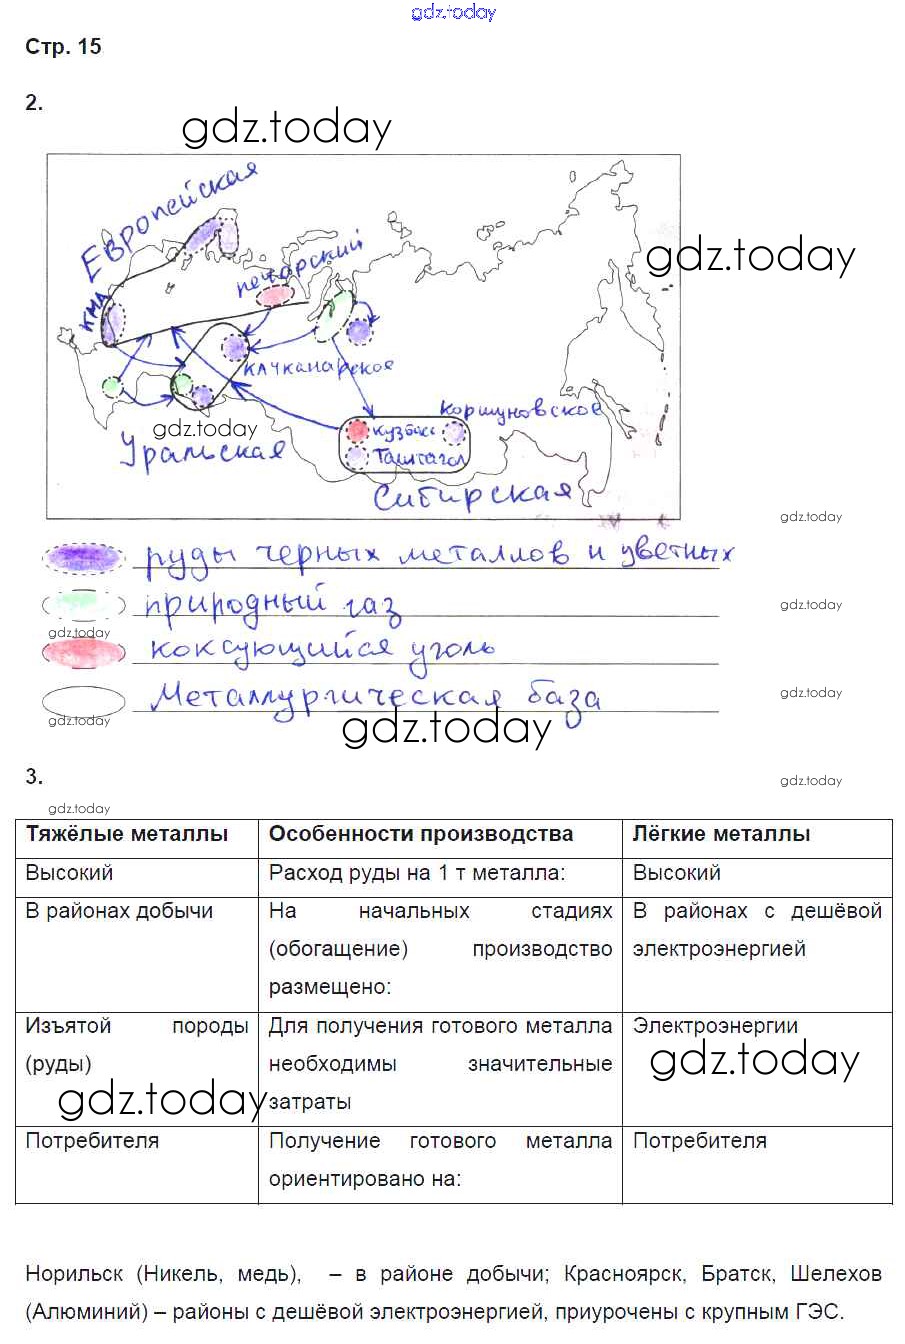 gdz.today
Стр. 15
2.
gdz.today
Европейская
gdz.today
печорский
КМА
качканарское
коршуновское
gdz.today
кузбасс
Уральская
Таштагол
Сибирская
gdz.today
руды черных металлов и цветных
природный газ
gdz.today
gdz.today
коксующийся уголь
Металлургическая база
gdz.today
gdz.today
gdz.today
3.
gdz.today
gdz.today
Тяжёлые металлы Особенности производства Лёгкие металлы
Высокий Расход руды на 1 т металла: Высокий
В районах добычи На начальных стадиях В районах с дешёвой
(обогащение) производство электроэнергией
размещено:
Изъятой породы Для получения готового металла Электроэнергии
(руды) необходимы значительные
gdz.today
затраты
gdz.today
Потребителя Получение готового металла Потребителя
ориентировано на:
Норильск (Никель, медь), – в районе добычи; Красноярск, Братск, Шелехов
(Алюминий) – районы с дешёвой электроэнергией, приурочены с крупным ГЭС.